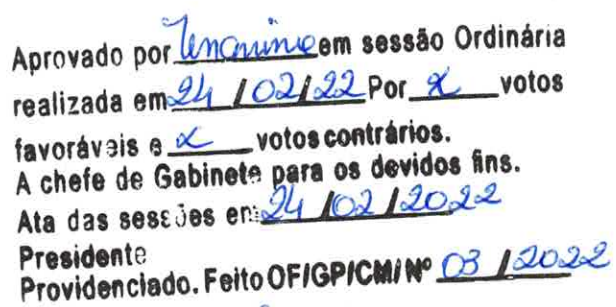 Aprovado por Unanime em sessão Ordinária
realizada em 24 / 02 / 22 Por x votos
favoráveis e x votos contrários.
A chefe de Gabinete para os devidos fins.
Ata das sessões em 24 / 02 / 2022
Presidente
Providenciado. Feito OF/GP/CM/ Nº 03 / 2022